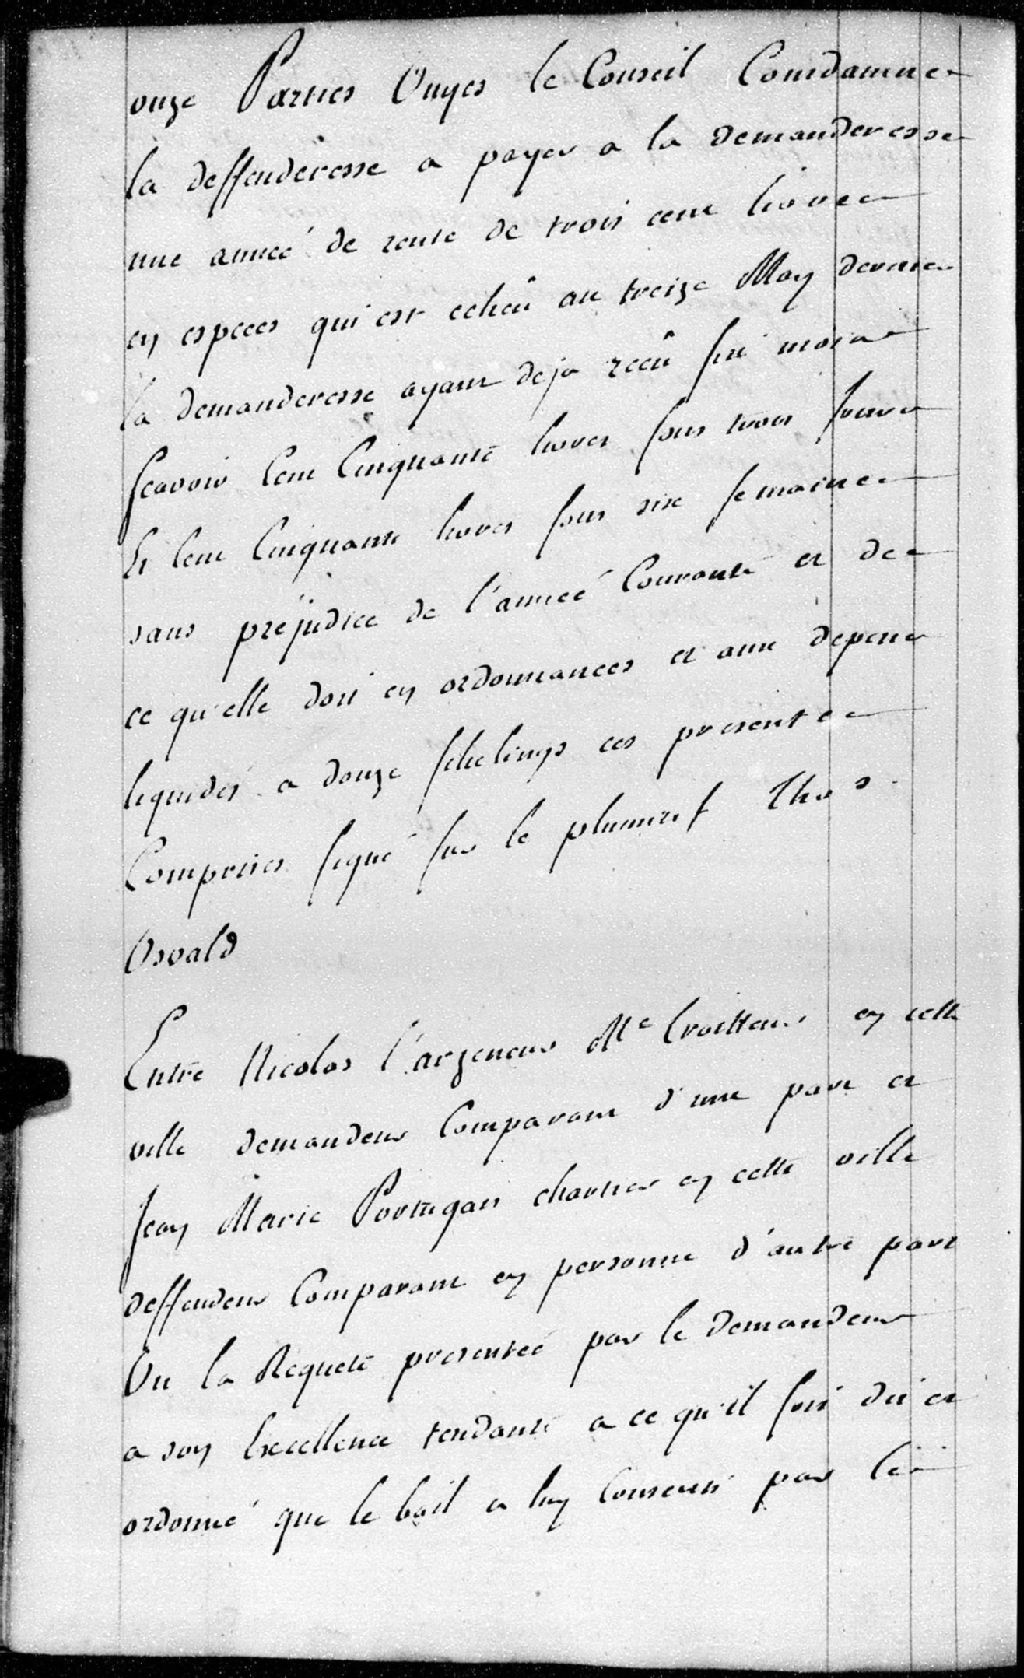 onze Parties Ouyes le Conseil Condamne
la deffenderesse a payer a la demanderesse
une année de rente de trois cent livres
en especes qui est echeû au treize May dernier
la demanderesse ayant deja recû six mois
scavoir Cent Cinquante livres sous trois jours
Et Cent Cinquante livres sous six semaines
sans prejudice de l'année Courante et de
ce qu'elle doit en ordonnances et aux depens
liquidés a douze schelings ces presentes
Comprises signé sur le plumitif Thos
Osvald
Entre Nicolas l'argeneur Me traitteur en cette
ville demandeur Comparant d'une part et
Jean Marie Portugais chartier en cette ville
deffendeur Comparant en personne d'autre part
Vu la Requete presentée par le demandeur
a son Excellence tendante a ce qu'il soit dit et
ordonné que le bail a luy Consenti par le